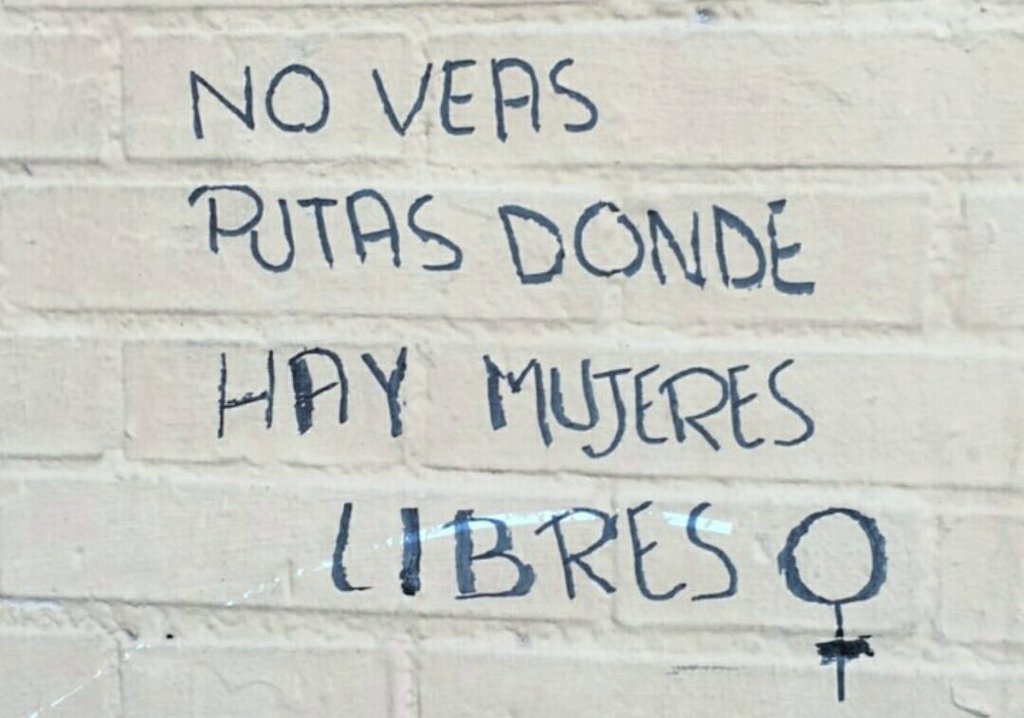 NO VEAS
PUTAS DONDE
HAY MUJERES
LIBRES ♀